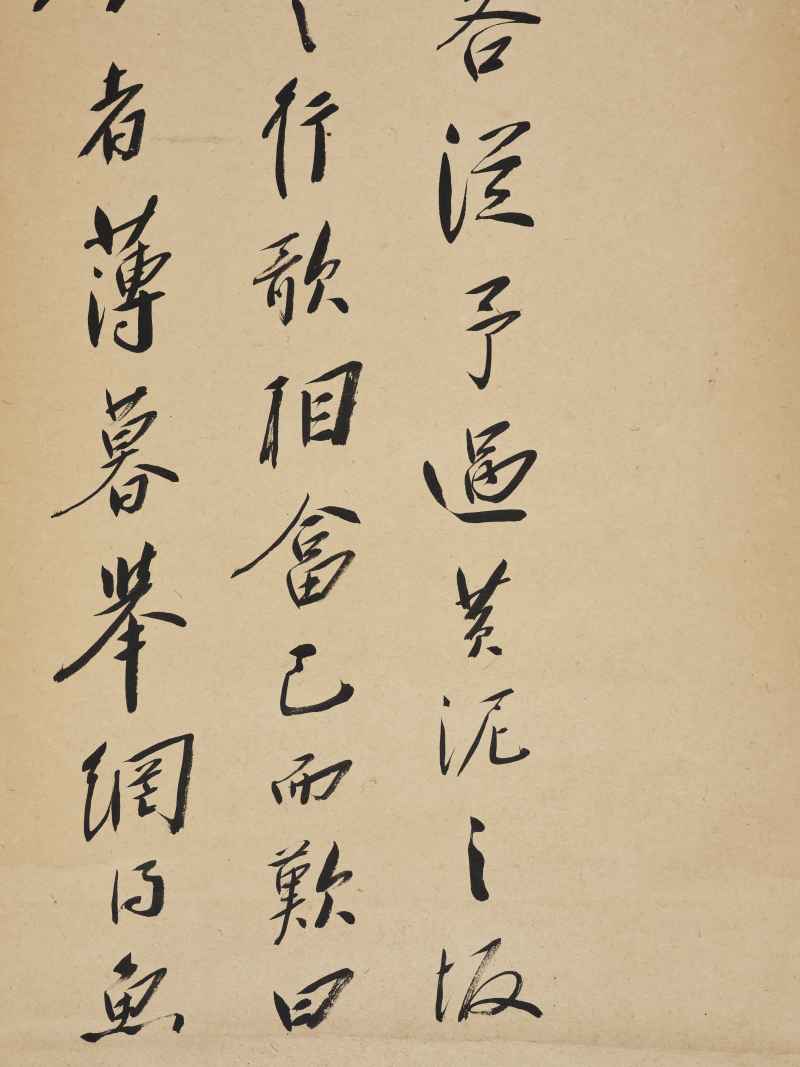 客从予過黄泥之坂
行歌相畣已而歎曰
者薄暮舉網得魚